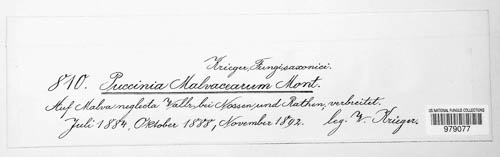 Krieger, Fungi saxonici.
810. Puccinia Malvacearum Mont.
Auf Malva neglecta Wallr., bei Nossen, und Rathen, verbreitet.
Juli 1884, Oktober 1888, November 1892. leg. W. Krieger.
US NATIONAL FUNGUS COLLECTIONS
979077